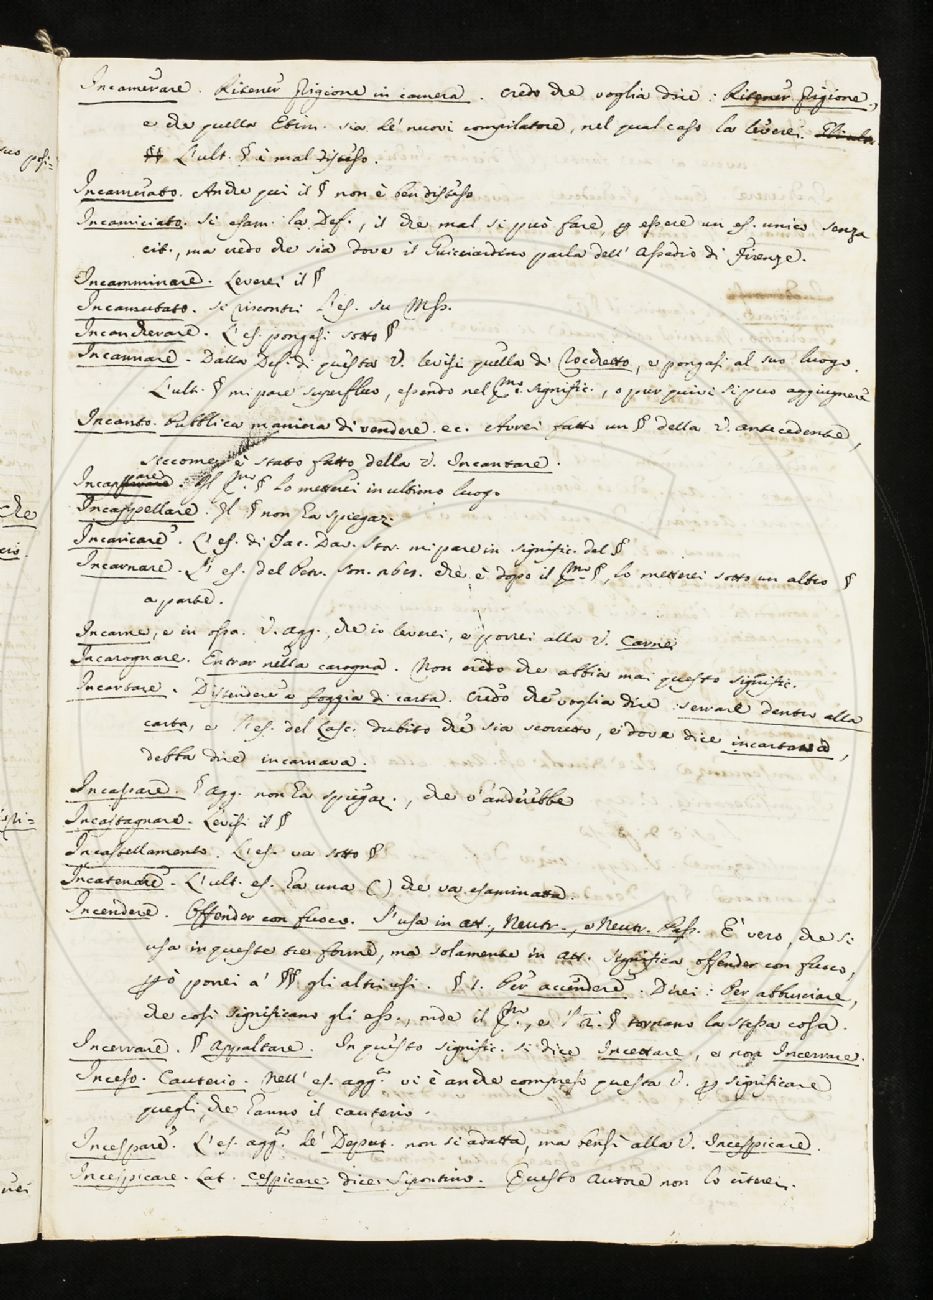 Incamerare. Ritener prigione in camera. Credo che voglia dire: Ritener prigione,
e che quella Etim. sia de' nuovi compilatori, nel qual caso la leverei.
L'ult. § è mal disteso.
Incamerato. Anche qui il § non è ben disteso
Incamiciato. Si esam. la Def., il che mal si può fare, per essere un es. unico senza
cit., ma credo che sia dove il Guicciardino parla dell'Assedio di Firenze.
Incamminare. Leverei il §
Incamutato. Si riscontri l'es. su Mss.
Incancherare. L'es. pongasi sotto §
Incannare. Dalla Def. di questa V. levisi quella di Rocchetto, e pongasi al suo luogo.
L'ult. § mi pare superfluo, essendo nel pmo. signific., o pur quivi si può aggiugnere
Incanto. Pubblica maniera di vendere ec. Avrei fatto un § della V. antecedente,
siccome è stato fatto della V. Incantare.
Incappare. Il pmo. § lo metterei in ultimo luogo
Incappellare. Il § non ha spiegaz.
Incaricare. L'es. di Tac. Dav. Stor. mi pare in signific. del §
Incarnare. L'es. del Petr. Son. che è dopo il pmo. §, lo metterei sotto un altro §
a parte.
Incarne, e in ossa. V. agg., che io leverei, e porrei alla V. Carne
Incarognare. Entrar nella carogna. Non credo che abbia mai questo signific.
Incartare. Distendere a foggia di carta. Credo che voglia dire serrare dentro alla
carta, e l'es. del Lasc. dubito che sia scorretto, e dove dice incartava,
debba dire incarnava.
Incassare. § agg. non ha spiegaz., che v'anderebbe
Incastagnare. Levisi il §
Incastellamento. L'es. va sotto §
Incatenare. L'ult. es. ha una ( ) che va esaminata.
Incendere. Offender con fuoco. S'usa in att., Neutr., e Neutr. Pass. È vero, che si
usa in queste tre forme, ma solamente in att. significa offender con fuoco,
però porrei a' §§ gli altri usi. § 1. Per accendere. Direi: Per abbruciare,
che così significano gli ess., onde il pmo., e l' 2. § tornano la stessa cosa.
Incerrare. § Appaltare. In questo signific. si dice Incettare, e non Incerrare.
Inceso. Cauterio. Nell'es. agg. vi è anche compreso questa V. per significare
quegli, che hanno il cauterio.
Incespare. L'es. agg. de' Deput. non si adatta, ma bensì alla V. Incespicare.
Incespicare. Lat. cespicare. dicesi Sipontino. Questo Autore non lo citerei.